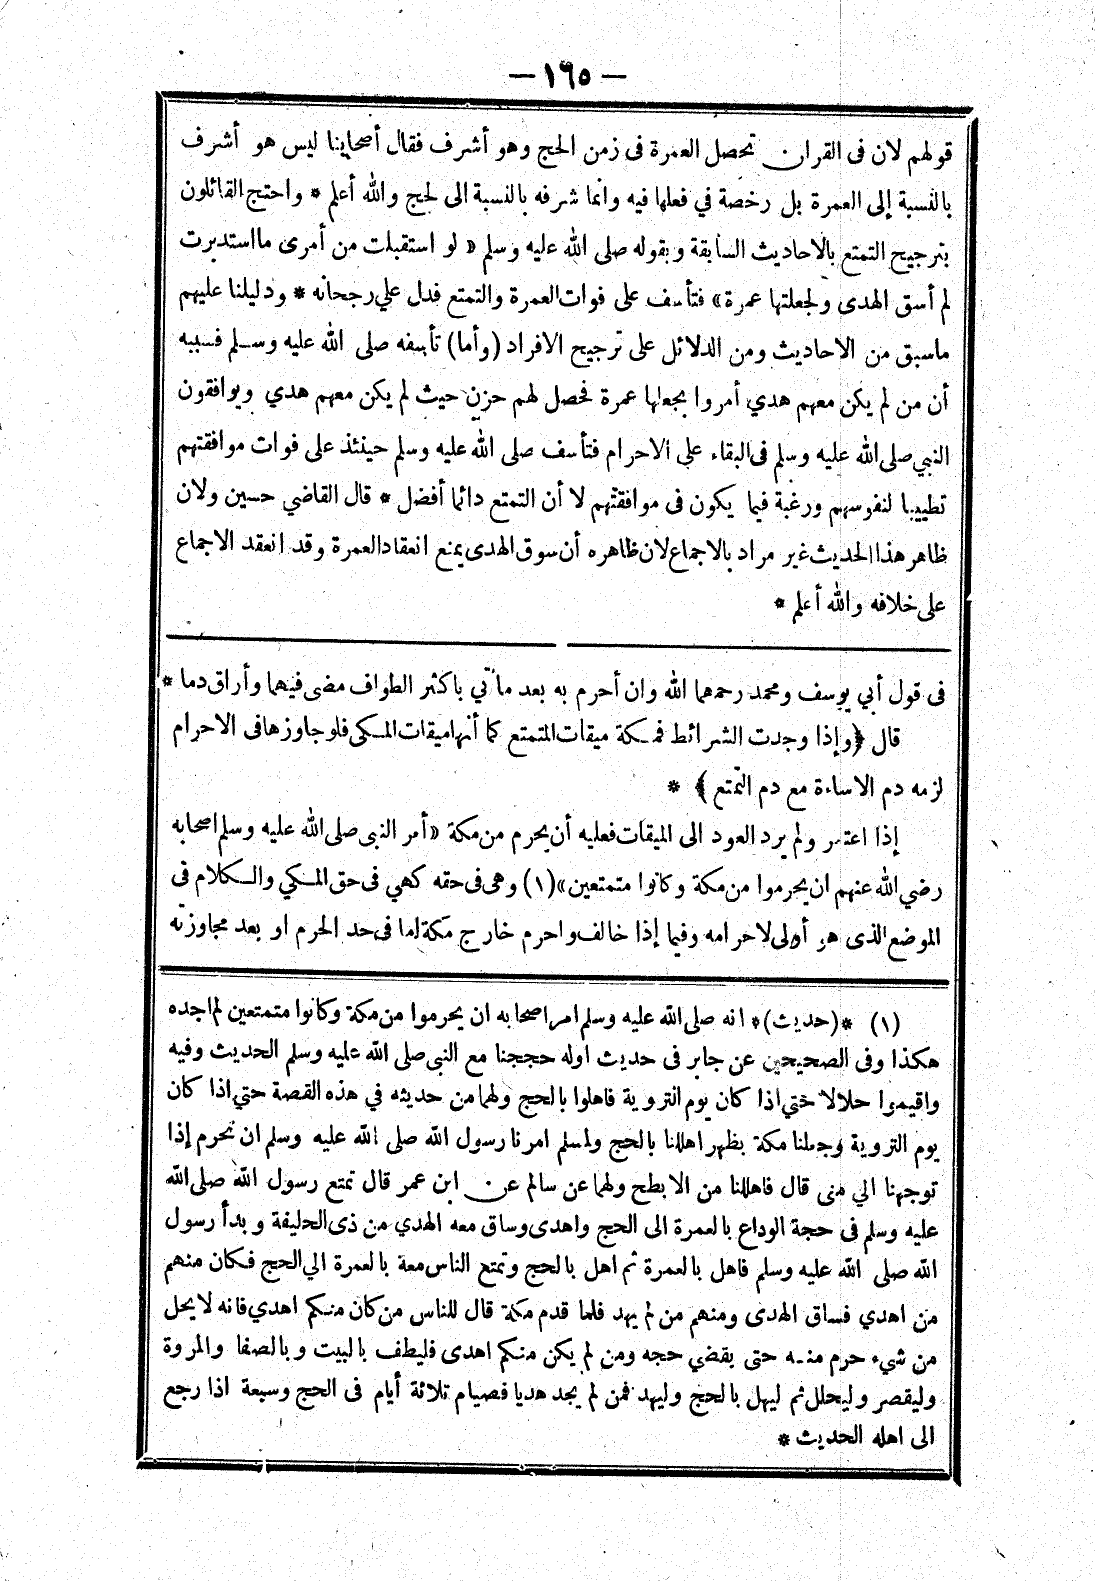 — ١٦٥ —
قولهم لان فى القران تحصل العمرة فى زمن الحج وهو أشرف فقال أصحابنا ليس هو أشرف
بالنسبة إلى العمرة بل رخصة في فعلها فيه وانما شرفه بالنسبة الى لحج والله أعلم * واحتج القائلون
بترجيح التمتع بالاحاديث السابقة وبقوله صلى الله عليه وسلم « لو استقبلت من أمرى مااستدبرت
لم أسق الهدى ولجعلتها عمرة» فتأسف على فوات العمرة والتمتع فدل علي رجحانه * ودليلنا عليهم
ماسبق من الاحاديث ومن الدلائل على ترجيح الافراد (وأما) تأسفه صلى الله عليه وسلم فسببه
أن من لم يكن معهم هدي أمروا بجعلها عمرة فحصل لهم حزن حيث لم يكن معهم هدي ويوافقون
النبي صلى الله عليه وسلم فى البقاء علي الاحرام فتأسف صلى الله عليه وسلم حينئذ على فوات موافقتهم
تطييبا لنفوسهم ورغبة فيما يكون فى موافقتهم لا أن التمتع دائما أفضل * قال القاضي حسين ولان
ظاهر هذا الحديث غير مراد بالاجماع لان ظاهره أن سوق الهدى يمنع انعقاد العمرة وقد انعقد الاجماع
على خلافه والله أعلم *
فى قول أبي يوسف ومحمد رحمهما الله وان أحرم به بعد ما أتي باكثر الطواف مضى فيهما وأراق دما *
قال ﴿وإذا وجدت الشرائط فمكة ميقات المتمتع كما أنها ميقات المكى فلو جاوزها فى الاحرام
لزمه دم الاساءة مع دم التمتع﴾ *
إذا اعتمر ولم يرد العود الى الميقات فعليه أن يحرم من مكة «أمر النبى صلى الله عليه وسلم اصحابه
رضي الله عنهم ان يحرموا من مكة وكانوا متمتعين» (١) وهى فى حقه كهي فى حق المكي والكلام فى
الموضع الذى هو أولى لاحرامه وفيما إذا خالف واحرم خارج مكة اما فى حد الحرم او بعد مجاوزته
(١) *(حديث)* انه صلى الله عليه وسلم امر اصحابه ان يحرموا من مكة وكانوا متمتعين لم اجده
هكذا وفى الصحيحين عن جابر فى حديث اوله حججنا مع النبى صلى الله عليه وسلم الحديث وفيه
واقيموا حلالا حتي اذا كان يوم التروية فاهلوا بالحج ولهما من حديثه في هذه القصة حتي اذا كان
يوم التروية وجعلنا مكة بظهر اهللنا بالحج ولمسلم امرنا رسول الله صلى الله عليه وسلم ان نحرم إذا
توجهنا الي منى قال فاهللنا من الابطح ولهما عن سالم عن ابن عمر قال تمتع رسول الله صلى الله
عليه وسلم فى حجة الوداع بالعمرة الى الحج واهدى وساق معه الهدي من ذى الحليفة وبدأ رسول
الله صلى الله عليه وسلم فاهل بالعمرة ثم اهل بالحج وتمتع الناس معة بالعمرة الي الحج فكان منهم
من اهدي فساق الهدى ومنهم من لم يهد فلما قدم مكة قال للناس من كان منكم اهدي فانه لا يحل
من شيء حرم منه حتى يقضي حجه ومن لم يكن منكم اهدى فليطف بالبيت وبالصفا والمروة
وليقصر وليحلل ثم ليهل بالحج وليهد فمن لم يجد هديا فصيام ثلاثة أيام فى الحج وسبعة اذا رجع
الى اهله الحديث *